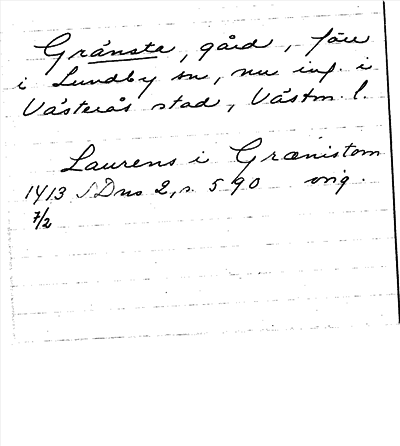 Gränsta, gård, förr
i Lundby sn, nu inf. i
Västerås stad, Västm. l.
Laurens i Grænistom
1413 SDns 2, s. 590 orig.
7/2